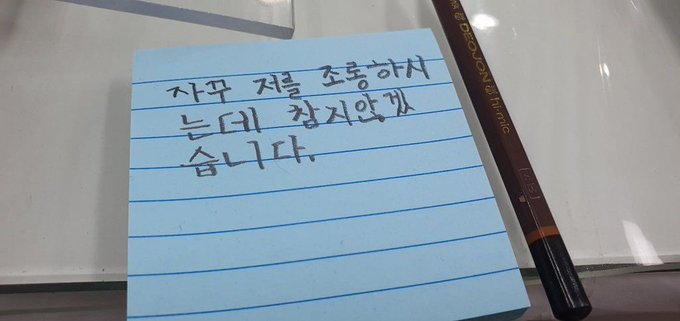 자꾸 저를 조롱하시
는데 참지않겠
습니다.
DEOJON hi-mic